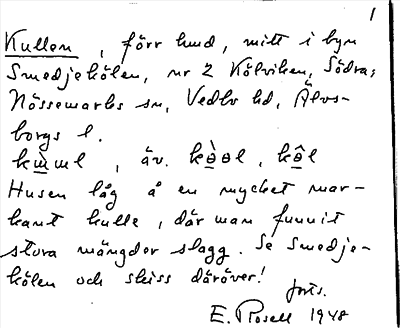 1
Kullen, förr hmd, mitt i byn
Smedjekölen, nr 2 Kölviken, Södra;
Nössemarks sn, Vedbo hd, Älvs-
borgs l.
äv.
Husen låg å en mycket mar-
kant kulle, där man funnit
stora mängder slagg. Se Smedje-
kölen och skiss däröver!
forts.
E. Rosell 1948